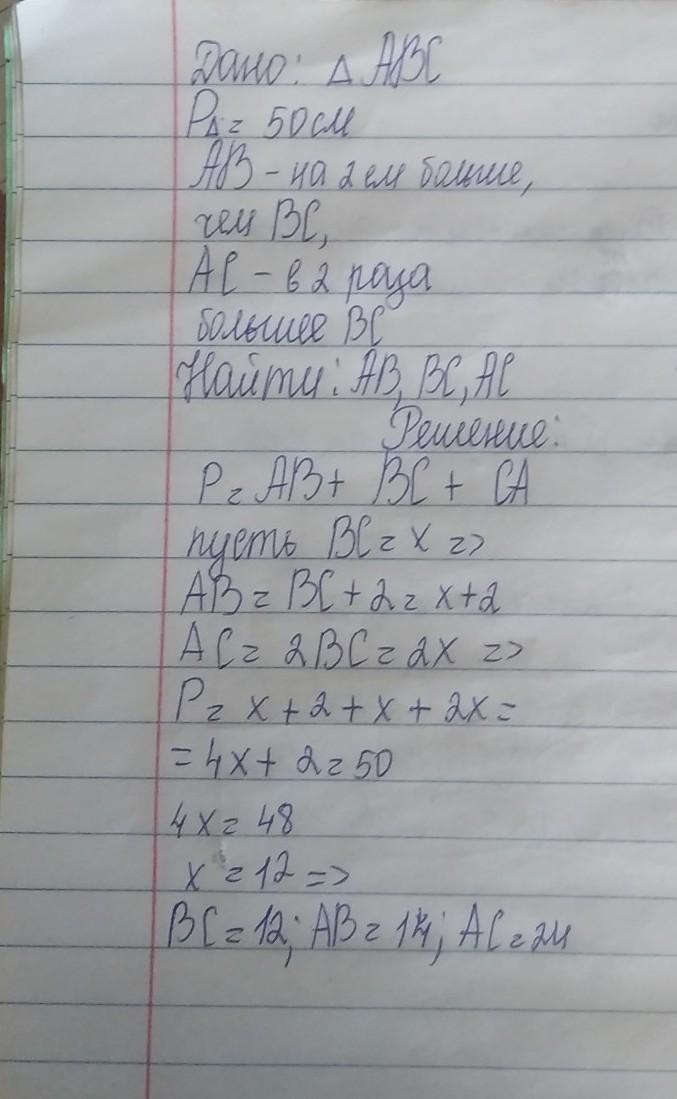 Дано: △ ABC
P△ = 50 см
AB - на 2 см больше,
чем BC,
AC - в 2 раза
большее BC
Найти: AB, BC, AC
Решение:
P = AB + BC + CA
пусть BC = x =>
AB = BC + 2 = x + 2
AC = 2BC = 2x =>
P = x + 2 + x + 2x =
= 4x + 2 = 50
4x = 48
x = 12 =>
BC = 12; AB = 14; AC = 24